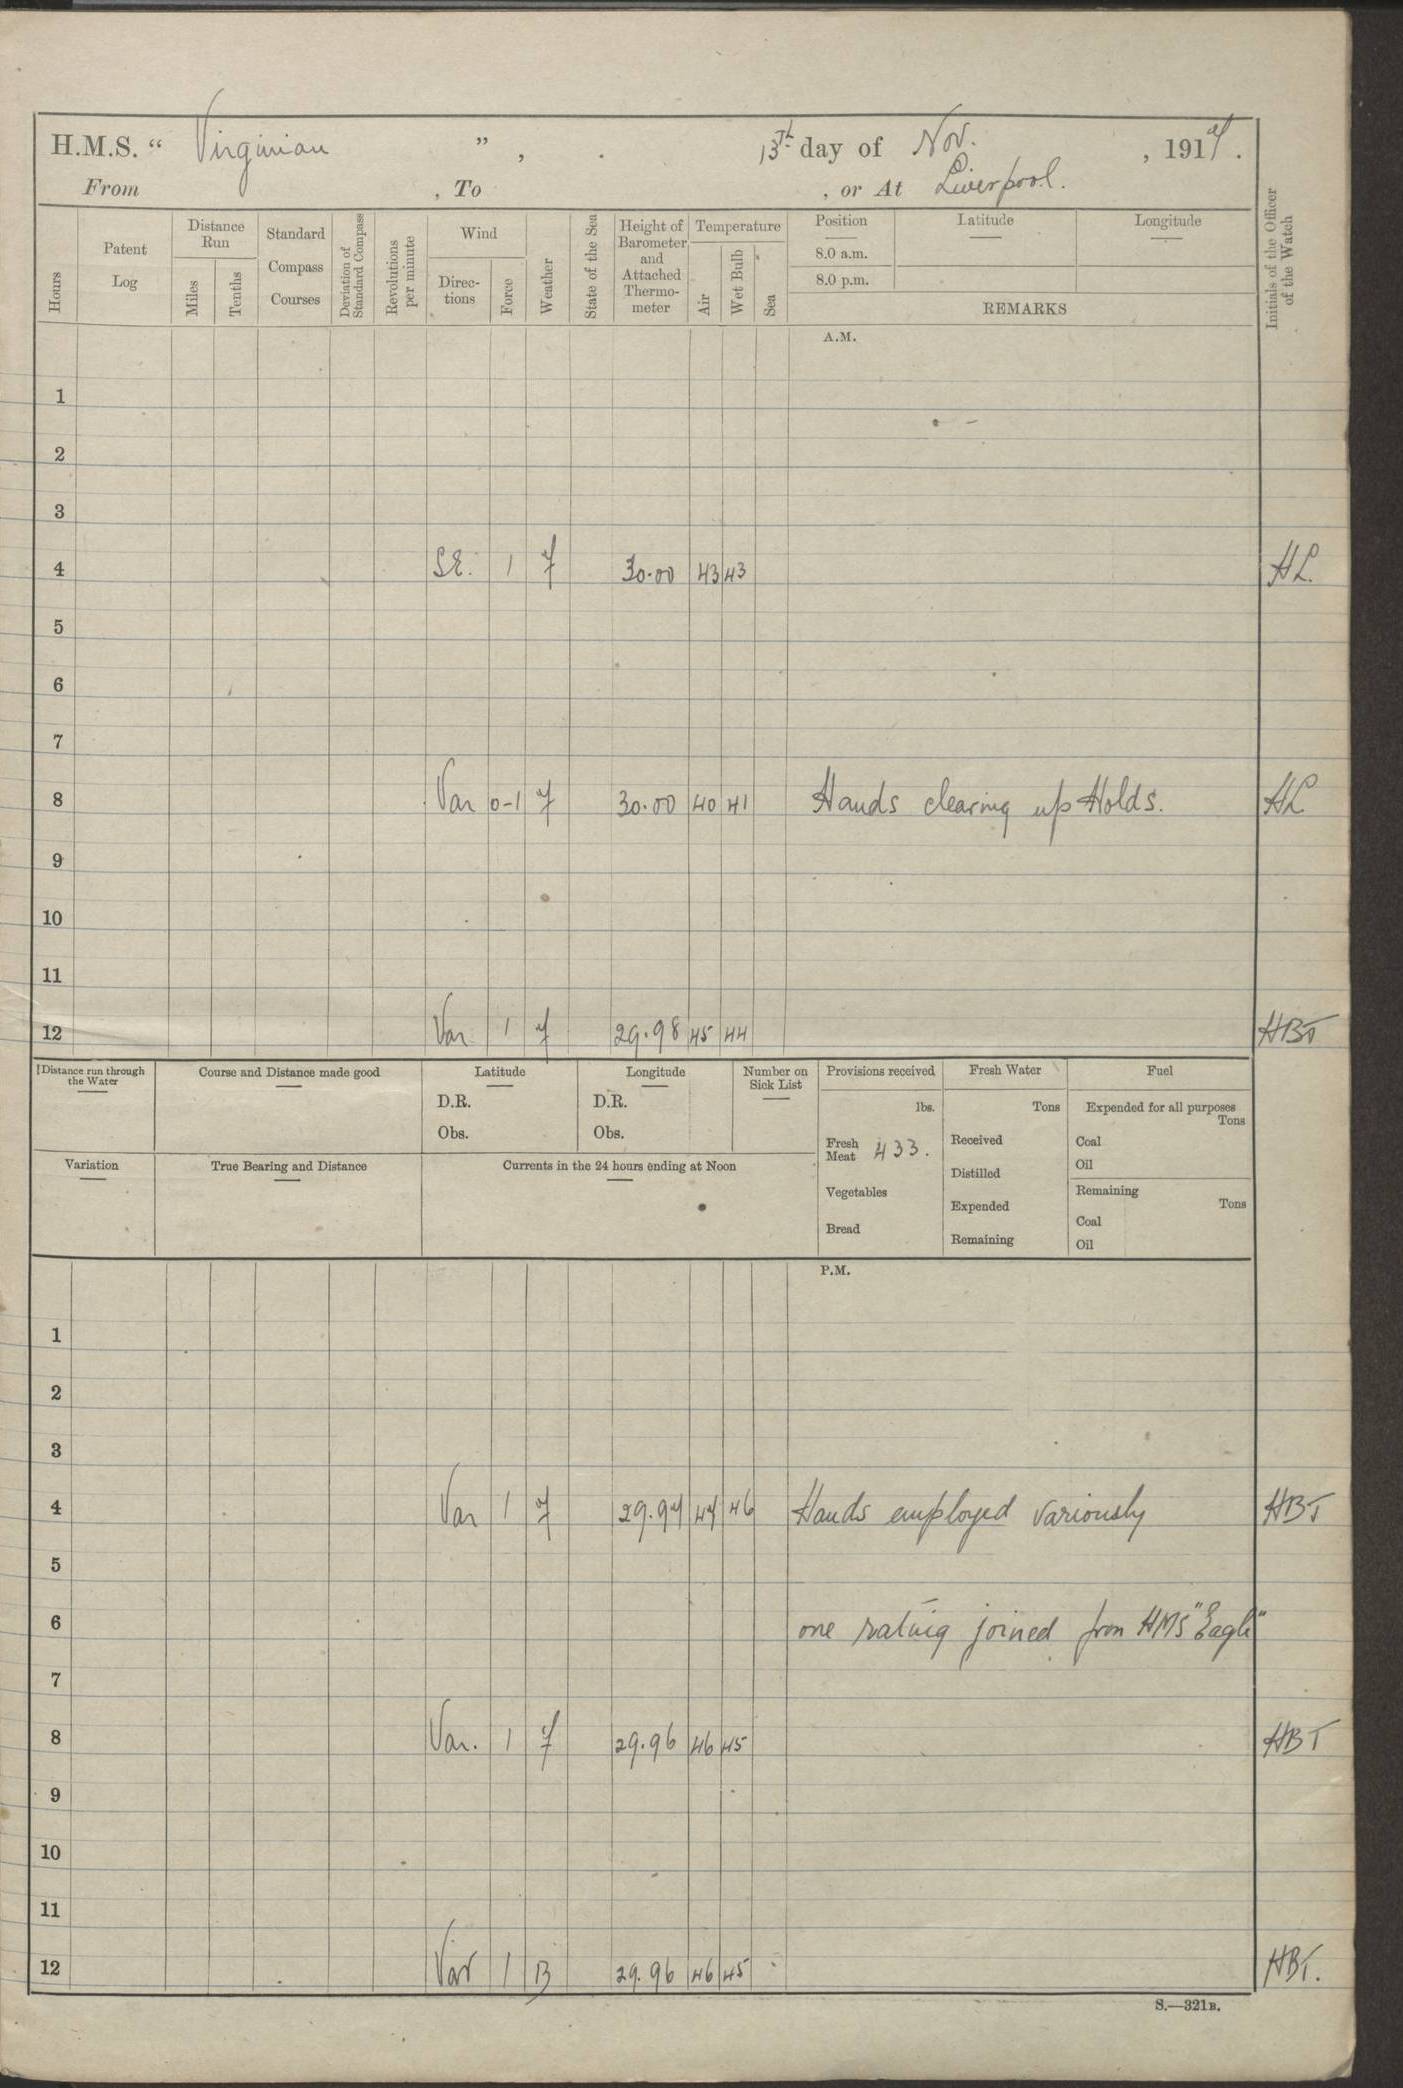 H.M.S. “ Virginian ” , 13th day of Nov. , 1917 .
From , To , or At Liverpool.
Hours Patent Log Distance Run Miles Tenths Standard Compass Courses Deviation of Standard Compass Revolutions per minute Wind Direc-tions Force Weather State of the Sea Height of Barometer and Attached Thermo-meter Temperature Air Wet Bulb Sea Position Latitude Longitude Initials of the Officer of the Watch
8.0 a.m.
8.0 p.m.
REMARKS
A.M.
1
2
3
4 S.E. 1 f 30.00 43 43 HL.
5
6
7
8 Var 0-1 f 30.00 40 41 Hands clearing up Holds. HL
9
10
11
12 Var 1 f 29.98 45 44 HBT
Distance run through the Water Course and Distance made good Latitude Longitude Number on Sick List Provisions received Fresh Water Fuel
lbs. Tons Expended for all purposes Tons
D.R. D.R.
Obs. Obs.
Fresh Meat 433. Received Coal
Oil
Variation True Bearing and Distance Currents in the 24 hours ending at Noon
Distilled
Vegetables Expended Remaining Tons
Bread Remaining Coal
Oil
P.M.
1
2
3
4 Var 1 f 29.97 47 46 Hands employed variously HBT
5
6 one rating joined from HMS "Eagle"
7
8 Var. 1 f 29.96 46 45 HBT
9
10
11
12 Var 1 B 29.96 46 45 HBT.
S.—321B.